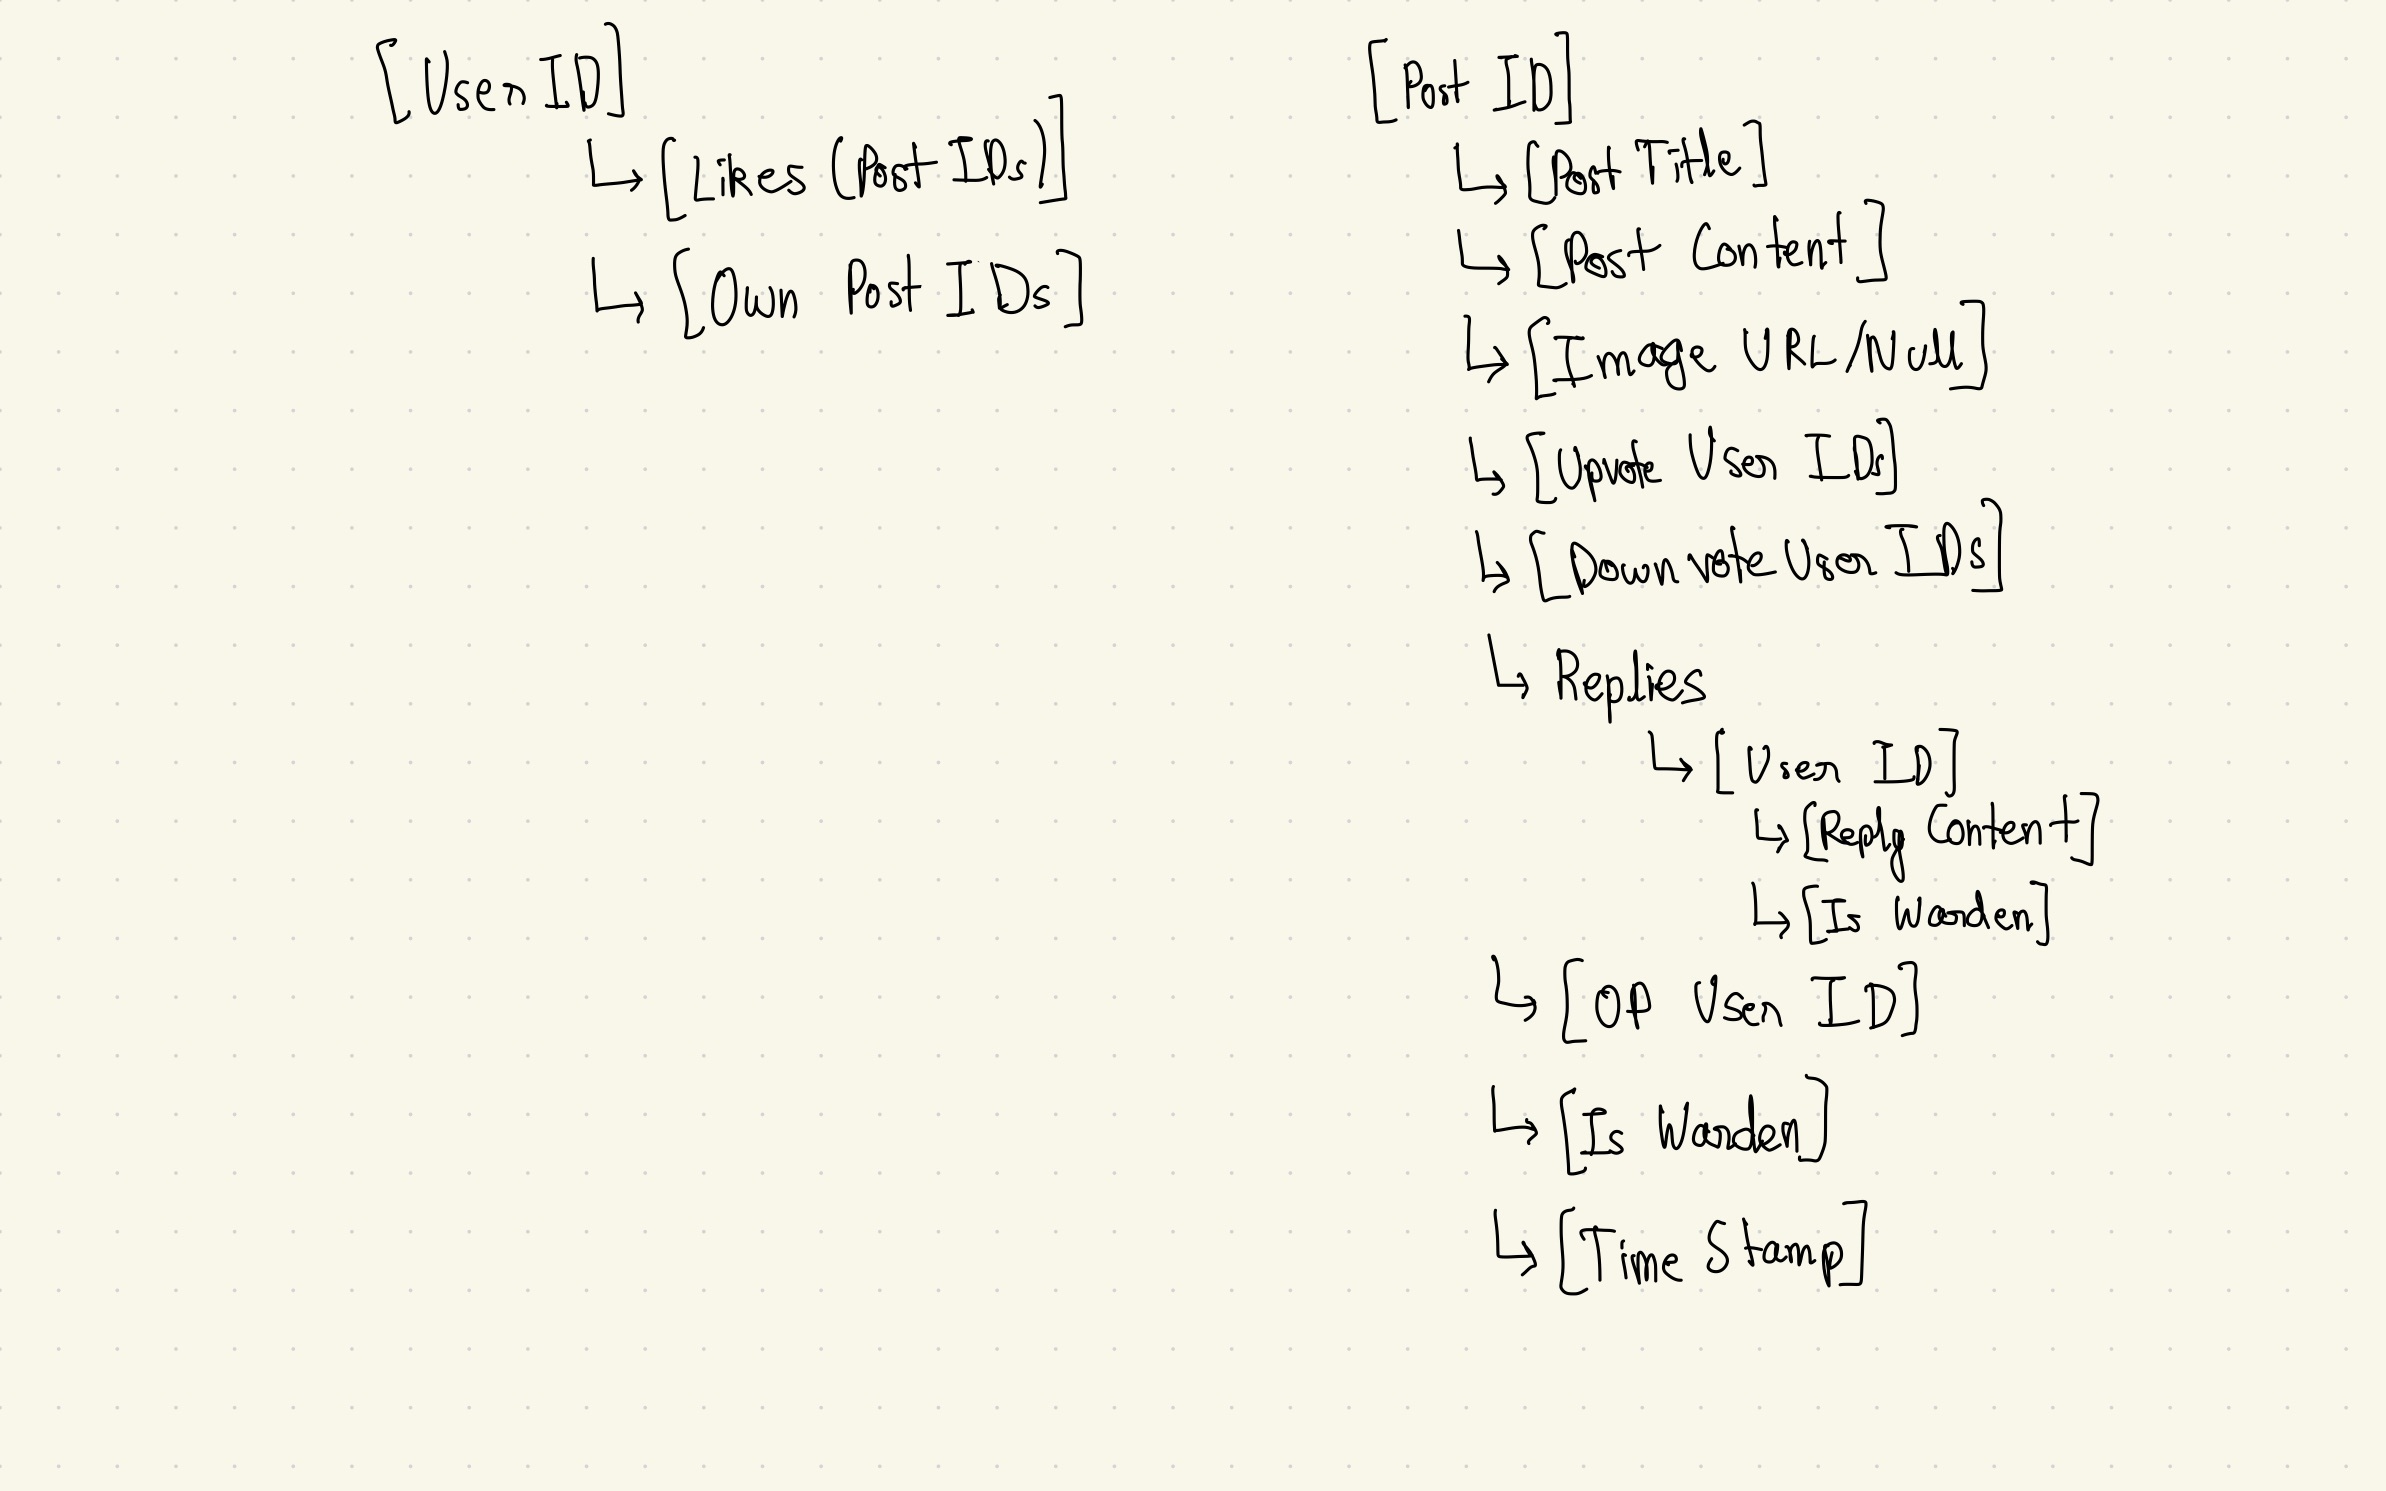 [User ID]
↳ [Likes (Post IDs)]
↳ [Own Post IDs]
[Post ID]
↳ [Post Title]
↳ [Post Content]
↳ [Image URL/Null]
↳ [Upvote User IDs]
↳ [Downvote User IDs]
↳ Replies
↳ [User ID]
↳ [Reply Content]
↳ [Is Warden]
↳ [OP User ID]
↳ [Is Warden]
↳ [Time Stamp]